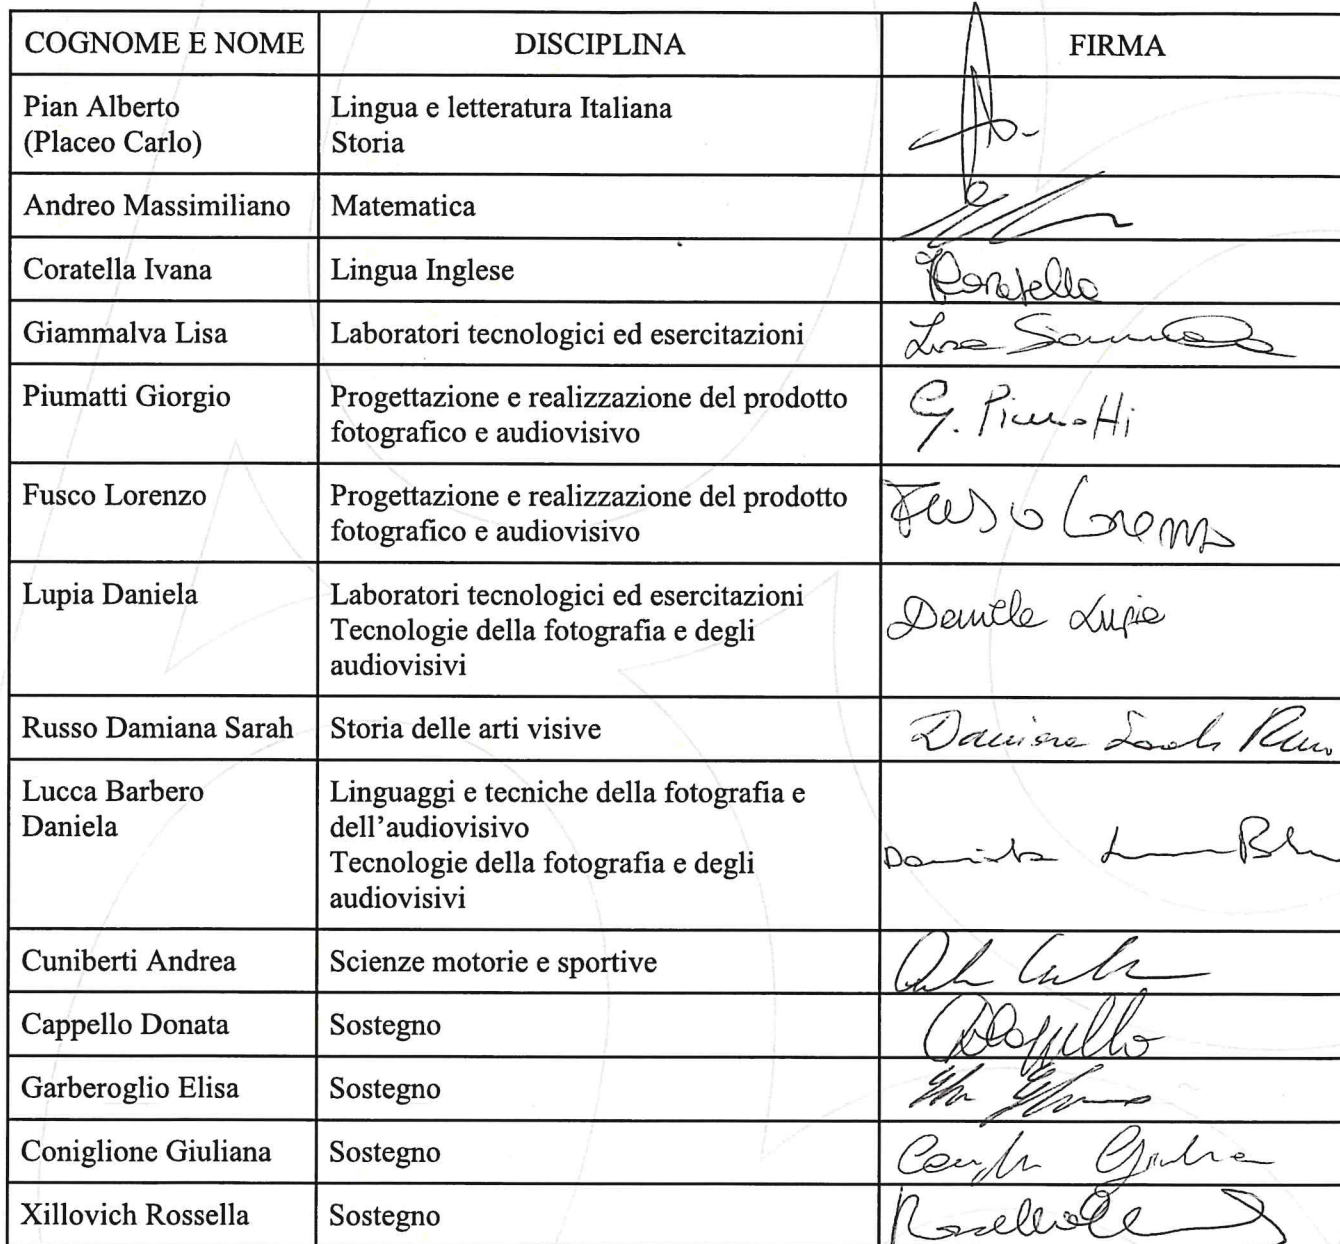 COGNOME E NOME DISCIPLINA FIRMA
Pian Alberto Lingua e letteratura Italiana
(Placeo Carlo) Storia
Andreo Massimiliano Matematica
Coratella Ivana Lingua Inglese Coratella
Giammalva Lisa Laboratori tecnologici ed esercitazioni Lisa
Piumatti Giorgio Progettazione e realizzazione del prodotto G. Piumatti
fotografico e audiovisivo
Fusco Lorenzo Progettazione e realizzazione del prodotto Fusco Lorenzo
fotografico e audiovisivo
Lupia Daniela Laboratori tecnologici ed esercitazioni Daniela Lupia
Tecnologie della fotografia e degli
audiovisivi
Russo Damiana Sarah Storia delle arti visive Damiana Sarah Russo
Lucca Barbero Linguaggi e tecniche della fotografia e
Daniela dell’audiovisivo Daniela
Tecnologie della fotografia e degli
audiovisivi
Cuniberti Andrea Scienze motorie e sportive
Cappello Donata Sostegno DCappello
Garberoglio Elisa Sostegno
Coniglione Giuliana Sostegno
Xillovich Rossella Sostegno